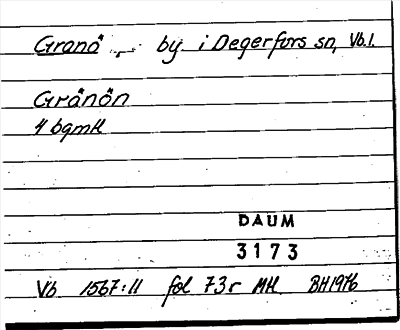 Granö, by i Degerfors sn, Vb.l.
Gränön
4 bgmH
DAUM
3173
Vb 1567:11 fol 73r MH BH1976